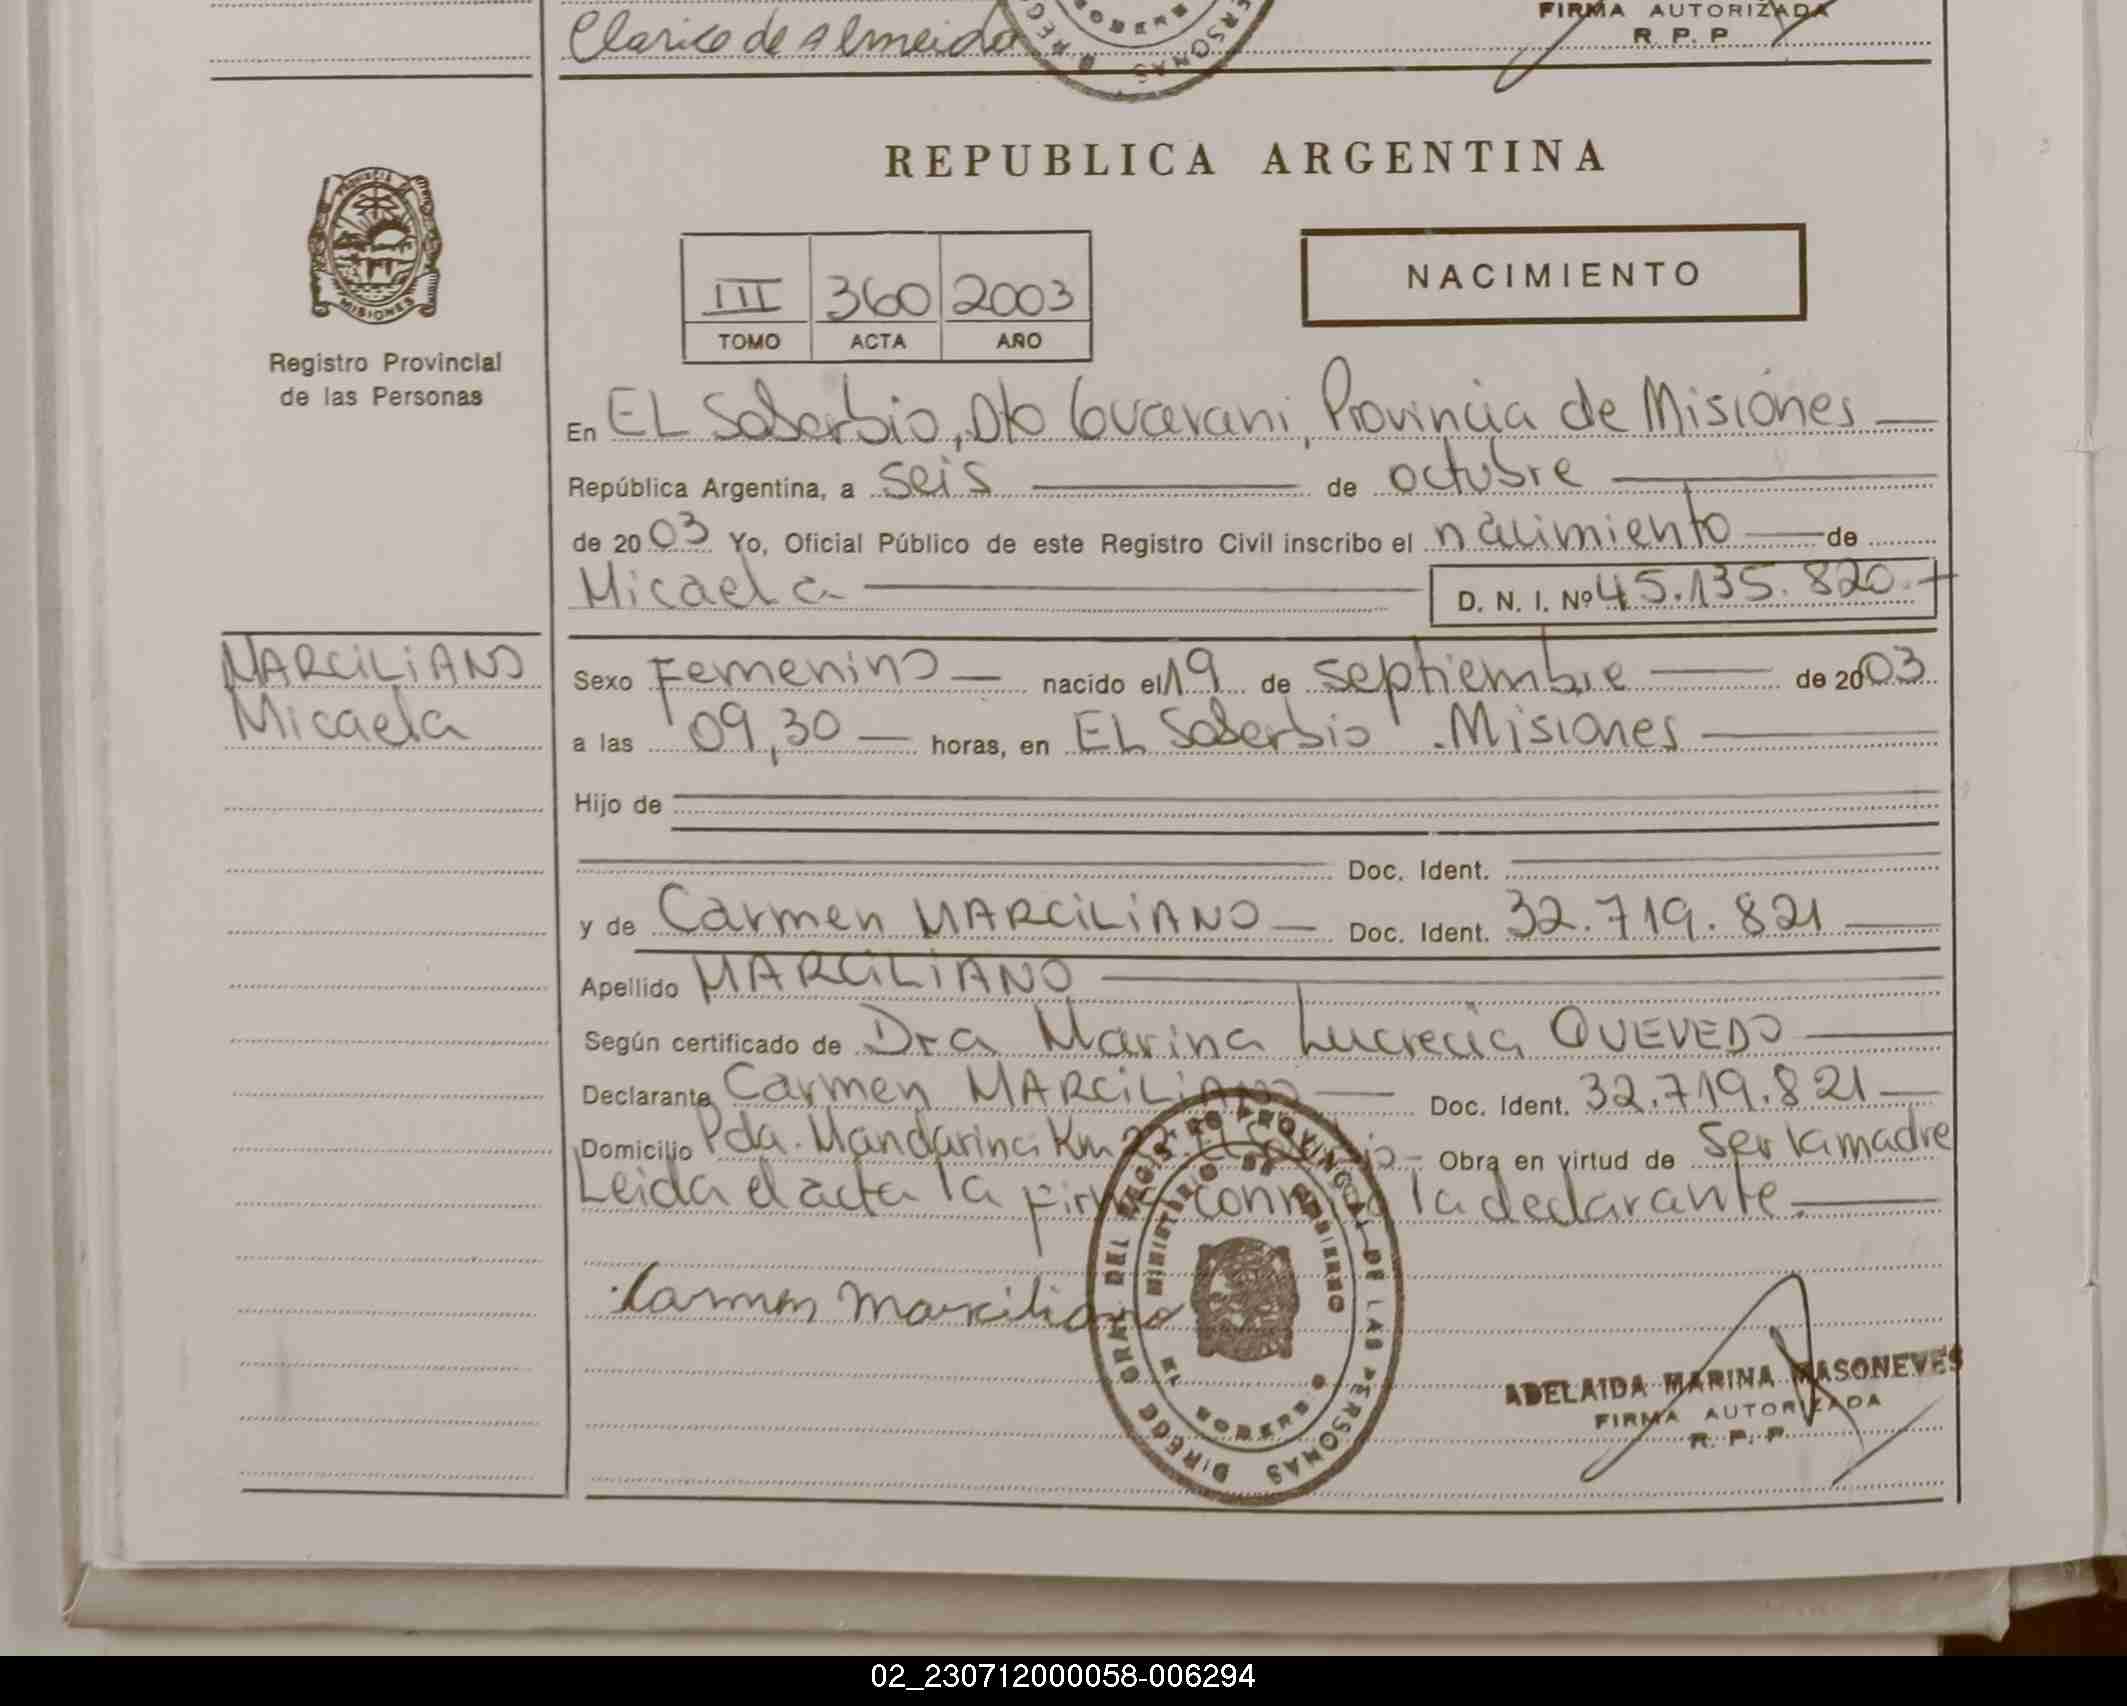 Clarice de Almeida
FIRMA AUTORIZADA
R. P. P.
REPUBLICA ARGENTINA
PROVINCIA DE
MISIONES
Registro Provincial
de las Personas
III 360 2003
TOMO ACTA AÑO
NACIMIENTO
En EL Soberbio, Dto Guarani, Provincia de Misiones
República Argentina, a seis de octubre
de 2003 Yo, Oficial Público de este Registro Civil inscribo el nacimiento de
Micaela D. N. I. Nº 45.135.820.-
MARCILIANO
Micaela
Sexo Femenino nacido el 19 de septiembre de 2003
a las 09,30 horas, en EL Soberbio. Misiones
Hijo de
Doc. Ident.
y de Carmen MARCILIANO Doc. Ident. 32.719.821
Apellido MARCILIANO
Según certificado de Dra Marina Lucrecia QUEVEDO
Declarante Carmen MARCILIANO Doc. Ident. 32.719.821
Domicilio Pda. Mandarina Km Obra en virtud de ser la madre
Leida el acta la firma conmigo la declarante.
Carmen Marciliano
DIRECC GRAL DEL REGISTRO PROVINCIAL DE LAS PERSONAS
MINISTERIO DE GOBIERNO
EL SOBERBIO
ADELAIDA MARINA MASONEVES
FIRMA AUTORIZADA
R. P. P.
02_230712000058-006294